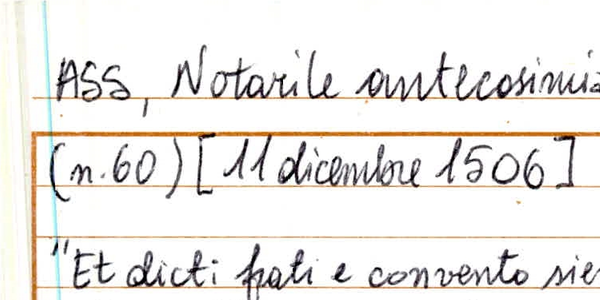 ASS, Notarile antecosimia
(n.60) [11 dicembre 1506]
"Et dicti frati e convento sie